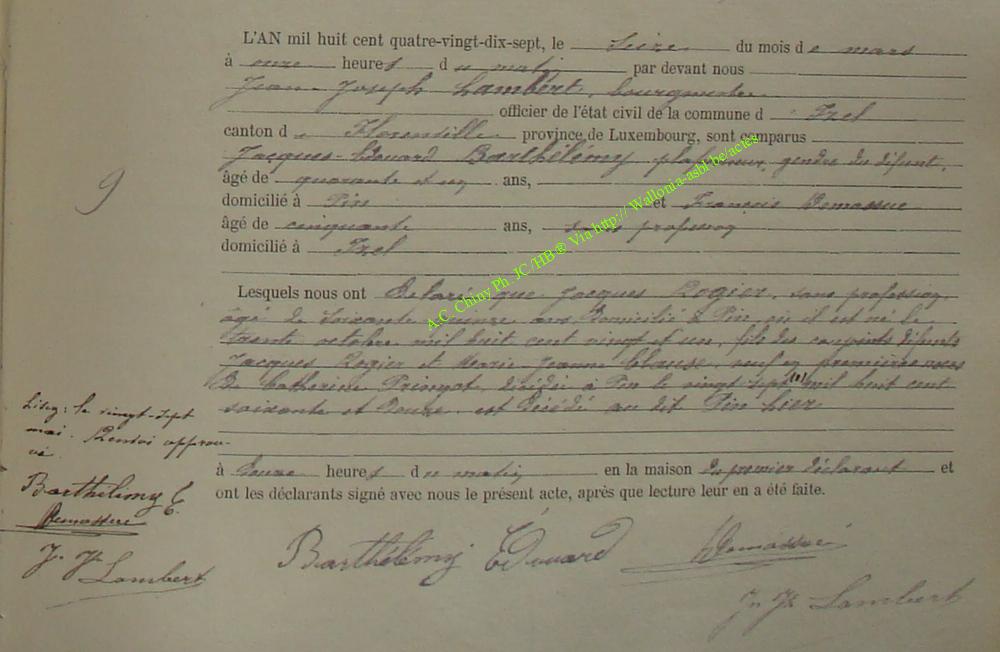 L'AN mil huit cent quatre-vingt-dix-sept, le seize du mois de mars
à onze heures du matin par devant nous
Jean Joseph Lambert, bourgmestre
officier de l'état civil de la commune d Izel
canton de Florenville province de Luxembourg, sont comparus
Jacques-Edouard Barthélémy, plafonneur, gendre du défunt,
âgé de quarante et un ans,
domicilié à Pin et François Demassue
âgé de cinquante ans, sans profession
domicilié à Izel
9
Lesquels nous ont déclaré que Jacques Rogier, sans profession,
âgé de soixante quinze ans, domicilié à Pin, où il est né le
trente octobre mil huit cent vingt et un, fils des conjoints défunts
Jacques Rogier et Marie Jeanne Clausse, veuf en premières noces
de Catherine Pringot, décédée à Pin le vingt sept (1) mil huit cent
soixante et douze, est décédé au dit Pin hier
à douze heures du matin en la maison du premier déclarant et
ont les déclarants signé avec nous le présent acte, après que lecture leur en a été faite.
Lisez: le vingt-sept
mai. Renvoi approu-
vé.
Barthélémy E.
Demassue
J. Jh Lambert
Barthélémy Edouard
Demassue
Jn Jh Lambert
A.C. Chiny Ph. JC/HB® Via http:// Wallonia-asbl be/actes